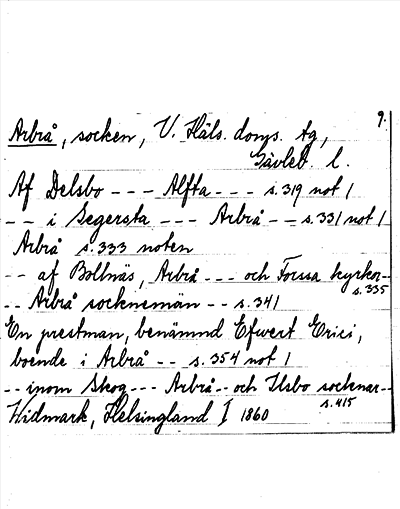 9.
Arbrå, socken, V. Häls. doms. tg,
Gävleb. l.
Af Delsbo --- Alfta --- s. 319 not 1
-- i Segersta --- Arbrå -- s. 331 not 1
Arbrå s. 333 noten
-- af Bollnäs, Arbrå --- och Forssa kyrkor--
s. 335
-- Arbrå socknemän -- s. 341
En prestman, benämnd Efwert Erici,
boende i Arbrå -- s. 354 not 1
-- inom Skog --- Arbrå -- och Ilsbo socknar--
s. 415
Widmark, Helsingland I 1860